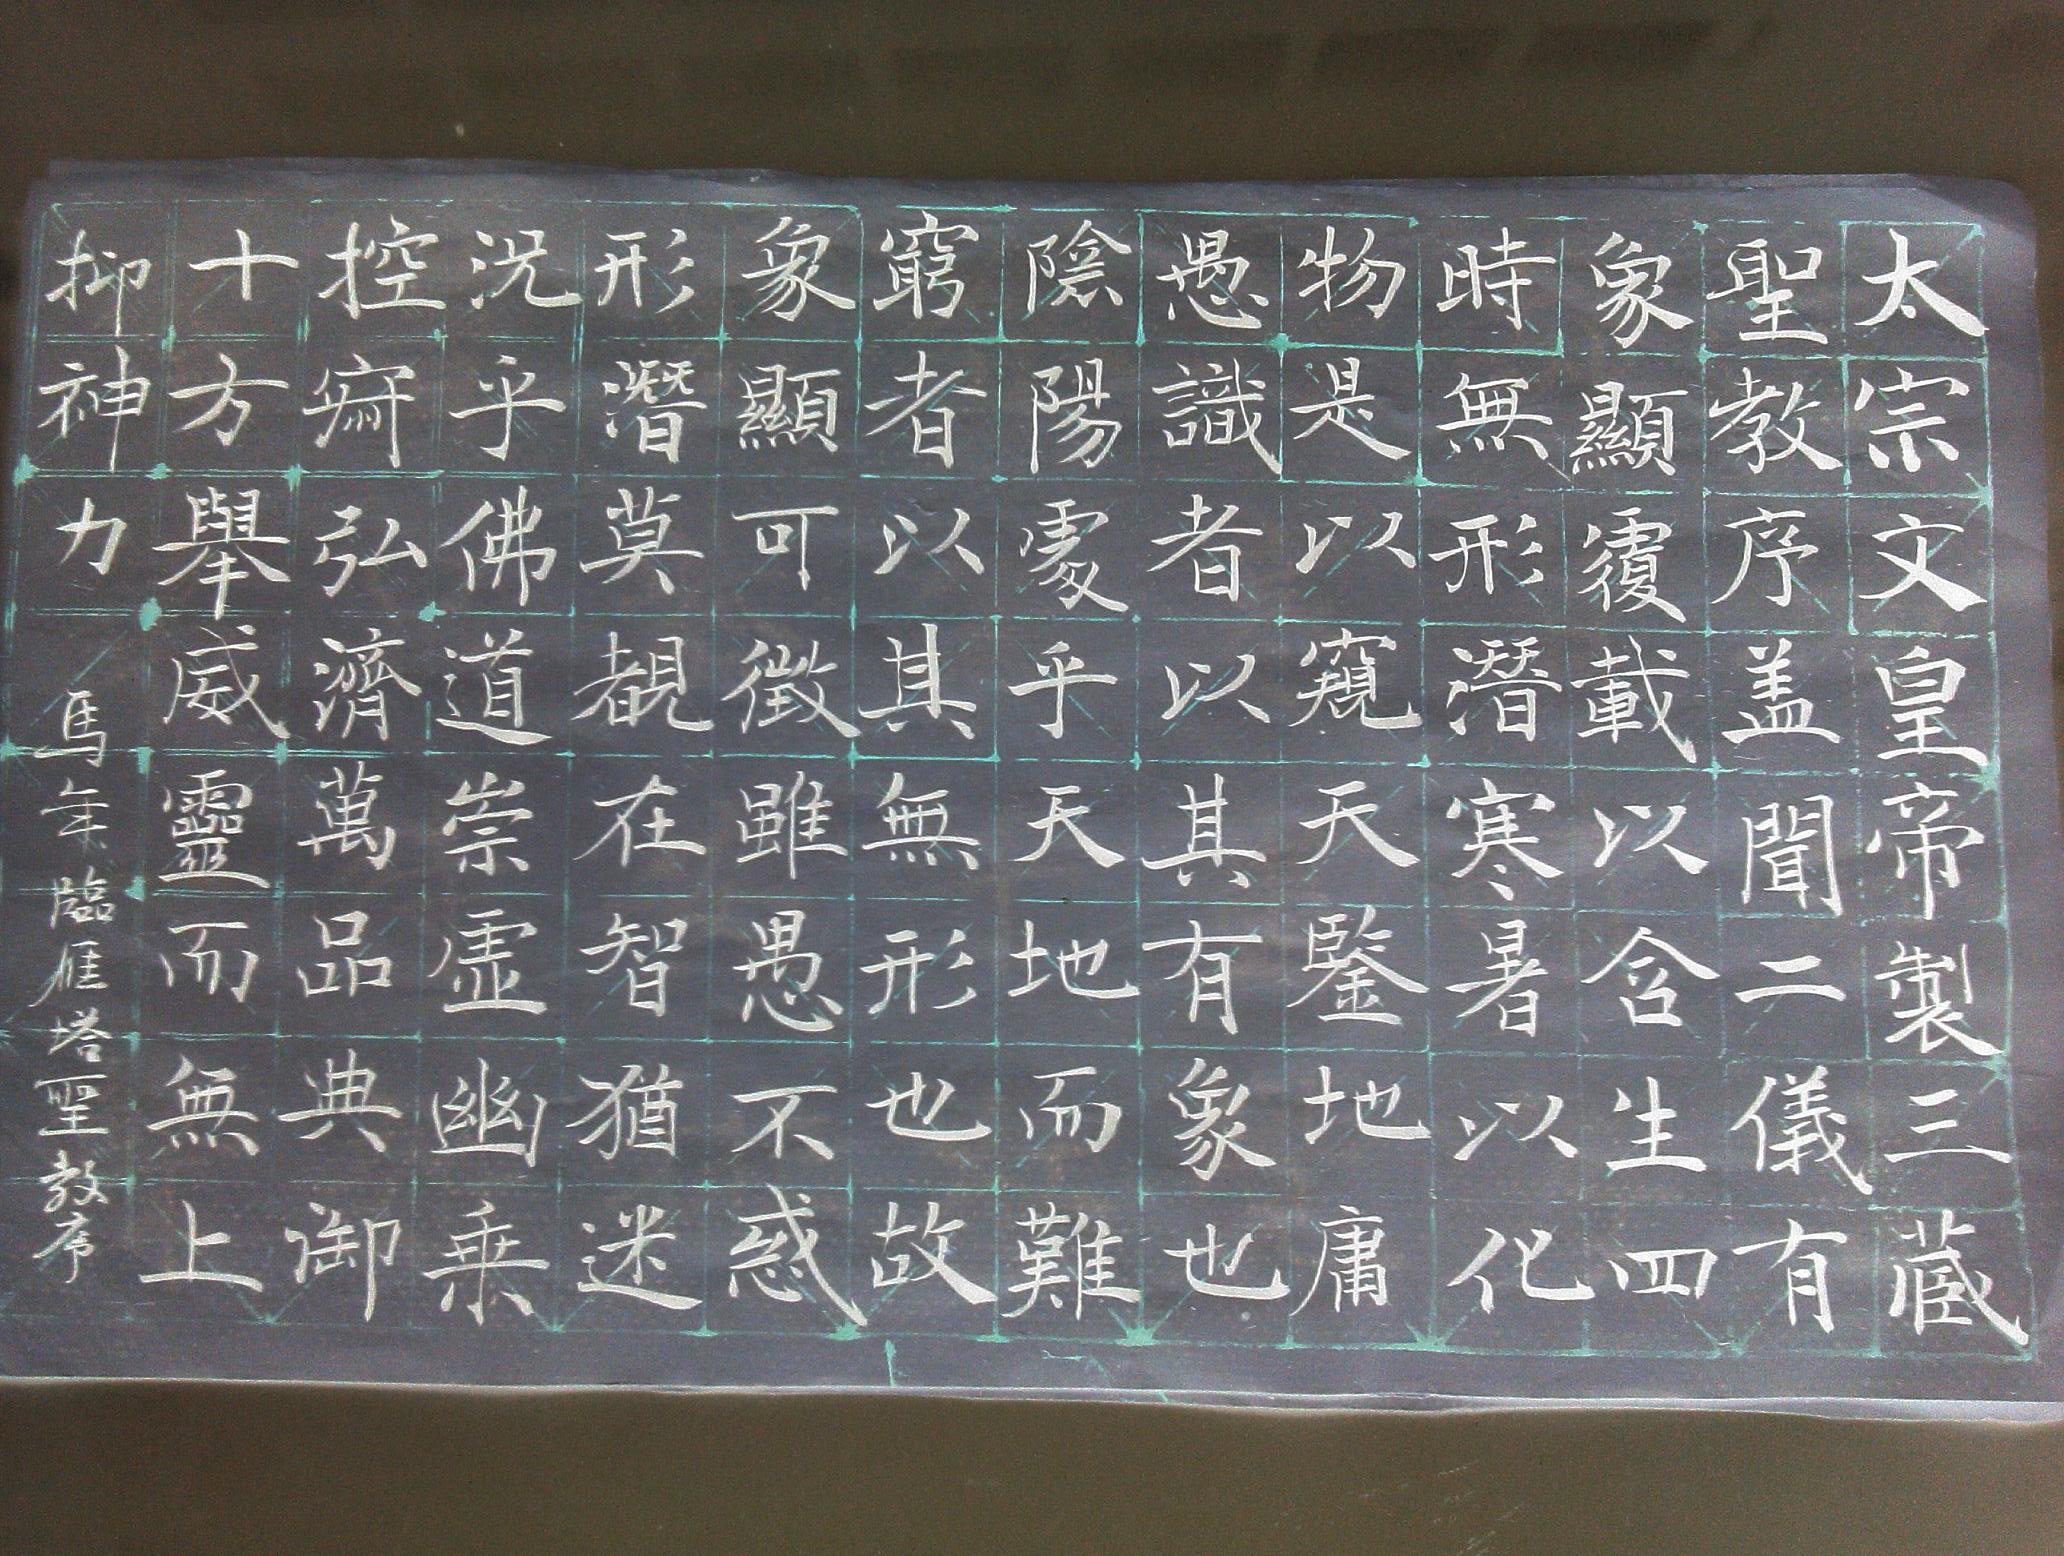 太宗文皇帝製三蔵
聖教序盖聞二儀有
象顯覆載以含生四
時無形潛寒暑以化
物是以窺天鑒地庸
愚識者以其有象也
陰陽處乎天地而難
窮者以其無形也故
象顯可徵雖愚不惑
形潛莫覩在智猶迷
況乎佛道崇虛幽乗
控寂弘濟萬品典御
十方舉威靈而無上
抑神力
馬年臨雁塔聖教序